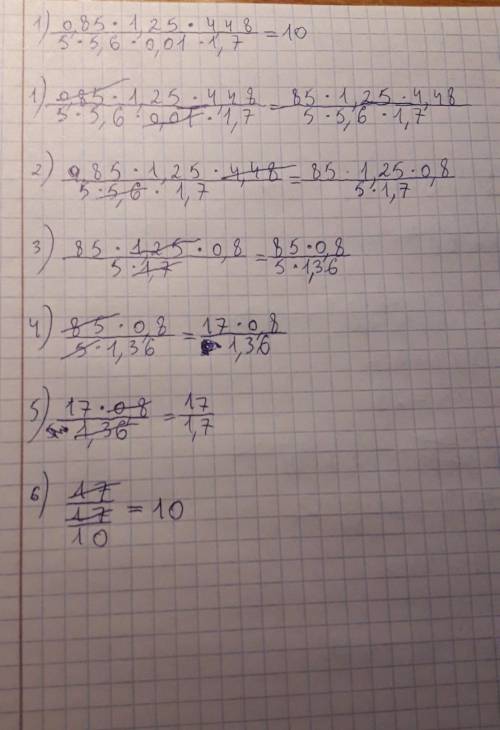 1) 0,85 · 1,25 · 4,48 / 5 · 5,6 · 0,01 · 1,7 = 10
1) 0,85 · 1,25 · 4,48 / 5 · 5,6 · 0,01 · 1,7 = 85 · 1,25 · 4,48 / 5 · 5,6 · 1,7
2) 0,85 · 1,25 · 4,48 / 5 · 5,6 · 1,7 = 85 · 1,25 · 0,8 / 5 · 1,7
3) 85 · 1,25 · 0,8 / 5 · 1,7 = 85 · 0,8 / 5 · 1,36
4) 85 · 0,8 / 5 · 1,36 = 17 · 0,8 / 1,36
5) 17 · 0,8 / 1,36 = 17 / 1,7
6) 17 / 17 / 10 = 10